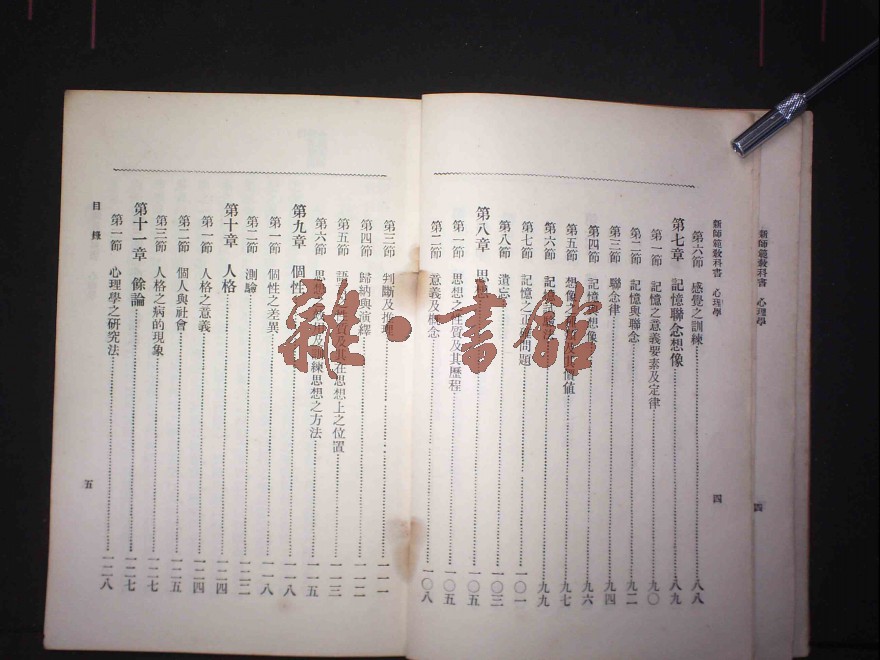 新師範教科書 心理學
四
新師範教科書 心理學
四
第六節 感覺之訓練 八八
第七章 記憶聯念想像 八九
第一節 記憶之意義要素及定律 九〇
第二節 記憶與聯念 九二
第三節 聯念律 九四
第四節 記憶與想像 九六
第五節 想像之 及 價值 九七
第六節 記憶 九九
第七節 記憶之 問題 一〇一
第八節 遺忘 一〇三
第八章 思想 一〇五
第一節 思想之性質及其歷程 一〇五
第二節 意義及概念 一〇八
第三節 判斷及推理 一一一
第四節 歸納與演繹 一一二
第五節 語 之性質及其在思想上之位置 一一三
第六節 思想之 及訓練思想之方法 一一五
第九章 個性 一一八
第一節 個性之差異 一一八
第二節 測驗
第十章 人格 一二四
第一節 人格之意義 一二四
第二節 個人與社會 一二五
第三節 人格之病的現象 一二七
第十一章 餘論 一二七
第一節 心理學之研究法 一二八
目錄
五
雜·書館